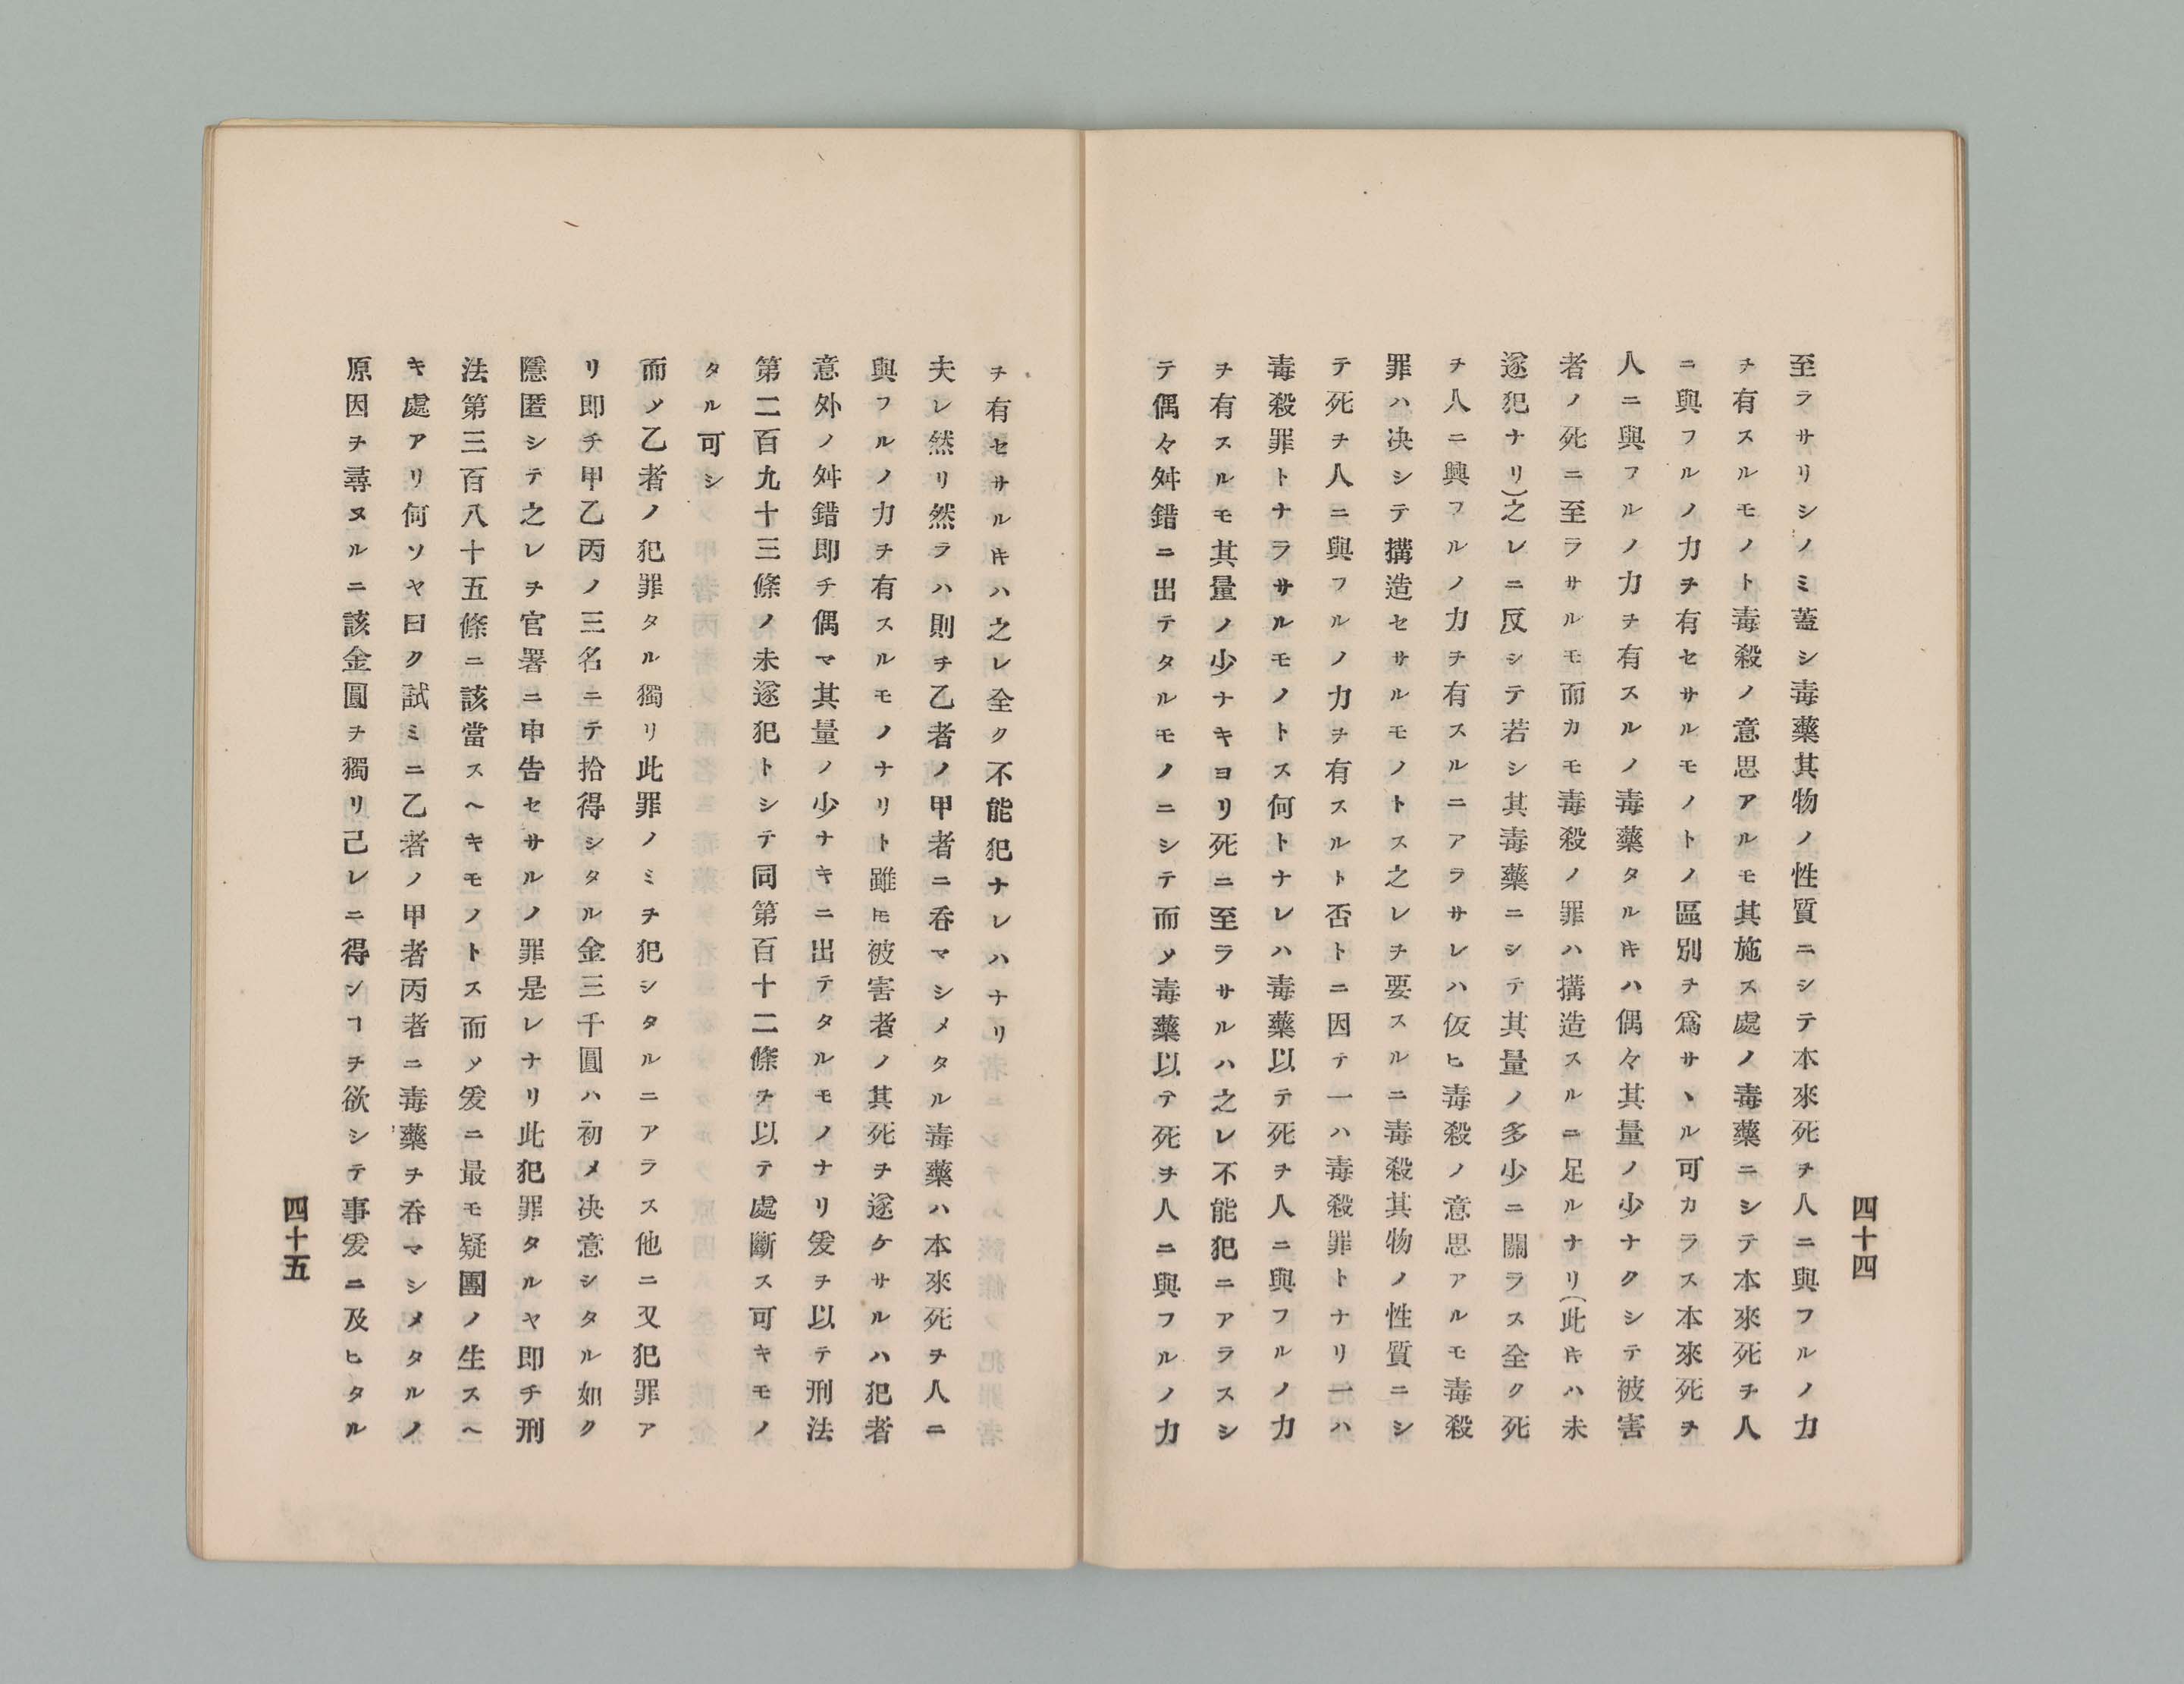 四十四
至ラサリシノミ蓋シ毒藥其物ノ性質ニシテ本來死ヲ人ニ與フルノ力
ヲ有スルモノト毒殺ノ意思アルモ其施ス處ノ毒藥ニシテ本來死ヲ人
ニ與フルノ力ヲ有セサルモノトノ區別ヲ爲サヽル可カラス本來死ヲ
人ニ與フルノ力ヲ有スルノ毒藥タル𪜈ハ偶々其量ノ少ナクシテ被害
者ノ死ニ至ラサルモ而カモ毒殺ノ罪ハ搆造スルニ足ルナリ(此𪜈ハ未
遂犯ナリ)之レニ反シテ若シ其毒藥ニシテ其量ノ多少ニ關ラス全ク死
ヲ人ニ興フルノ力ヲ有スルニアラサレハ仮ヒ毒殺ノ意思アルモ毒殺
罪ハ决シテ搆造セサルモノトス之レヲ要スルニ毒殺其物ノ性質ニシ
テ死ヲ人ニ與フルノ力ヲ有スルト否トニ因テ一ハ毒殺罪トナリ一ハ
毒殺罪トナラサルモノトス何トナレハ毒藥以テ死ヲ人ニ與フルノ力
ヲ有スルモ其量ノ少ナキヨリ死ニ至ラサルハ之レ不能犯ニアラスシ
テ偶々舛錯ニ出テタルモノニシテ而メ毒藥以テ死ヲ人ニ與フルノ力
ヲ有セサルキハ之レ全ク不能犯ナレハナリ
夫レ然リ然ラハ則チ乙者ノ甲者ニ呑マシメタル毒藥ハ本來死ヲ人ニ
與フルノ力ヲ有スルモノナリト雖𪜈被害者ノ其死ヲ遂ケサルハ犯者
意外ノ舛錯即チ偶マ其量ノ少ナキニ出テタルモノナリ爰ヲ以テ刑法
第二百九十三條ノ未遂犯トシテ同第百十二條ヲ以テ處斷ス可キモノ
タル可シ
而メ乙者ノ犯罪タル獨リ此罪ノミヲ犯シタルニアラス他ニ又犯罪ア
リ即チ甲乙丙ノ三名ニテ拾得シタル金三千圓ハ初メ决意シタル如ク
隱匿シテ之レヲ官署ニ申告セサルノ罪是レナリ此犯罪タルヤ即チ刑
法第三百八十五條ニ該當スヘキモノトス而メ爰ニ最モ疑團ノ生スヘ
キ處アリ何ソヤ曰ク試ミニ乙者ノ甲者丙者ニ毒藥ヲ呑マシメタルノ
原因ヲ尋ヌルニ該金圓ヲ獨リ己レニ得ンヿヲ欲シテ事爰ニ及ヒタル
四十五